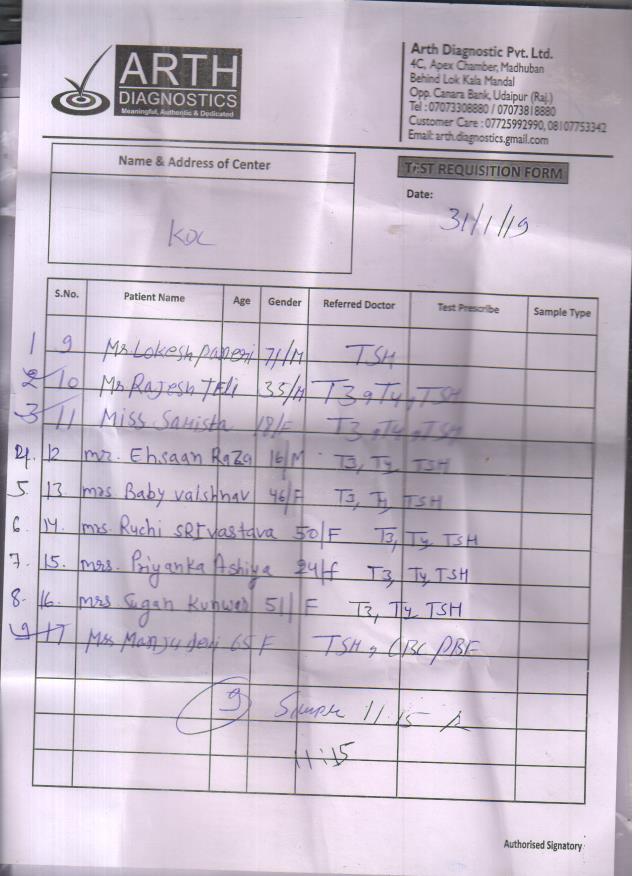 ARTH
DIAGNOSTICS
Meaningful, Authentic & Dedicated
Arth Diagnostic Pvt. Ltd.
4C, Apex Chamber, Madhuban
Behind Lok Kala Mandal
Opp. Canara Bank, Udaipur (Raj.)
Tel : 07073308880 / 07073818880
Customer Care : 07725992990, 08107753342
Email: arth.diagnostics.gmail.com
Name & Address of Center
TEST REQUISITION FORM
Date:
31/1/19
S.No. Patient Name Age Gender Referred Doctor Test Prescribe Sample Type
1 9 Mr Lokesh paneri 71/M TSH
2 10 Mr Rajesh TELI 35/M T3, T4, TSH
3 11 Miss 18/F T3, T4, TSH
4. 12 mr. Ehsaan Raza 16/M T3, T4 TSH
5. 13 mrs Baby vaishnav 46/F T3, T4 TSH
6. 14. mrs. Ruchi SRIvastava 50/F T3, T4, TSH
7. 15. mrs. Priyanka Ashiya 24/f T3, T4, TSH
8. 16. mrs. Sugan Kunwar 51/F T3, T4, TSH
9 17 Mrs Manju devi 65 F TSH, CBC PBF
9 11:15
11:15
Authorised Signatory